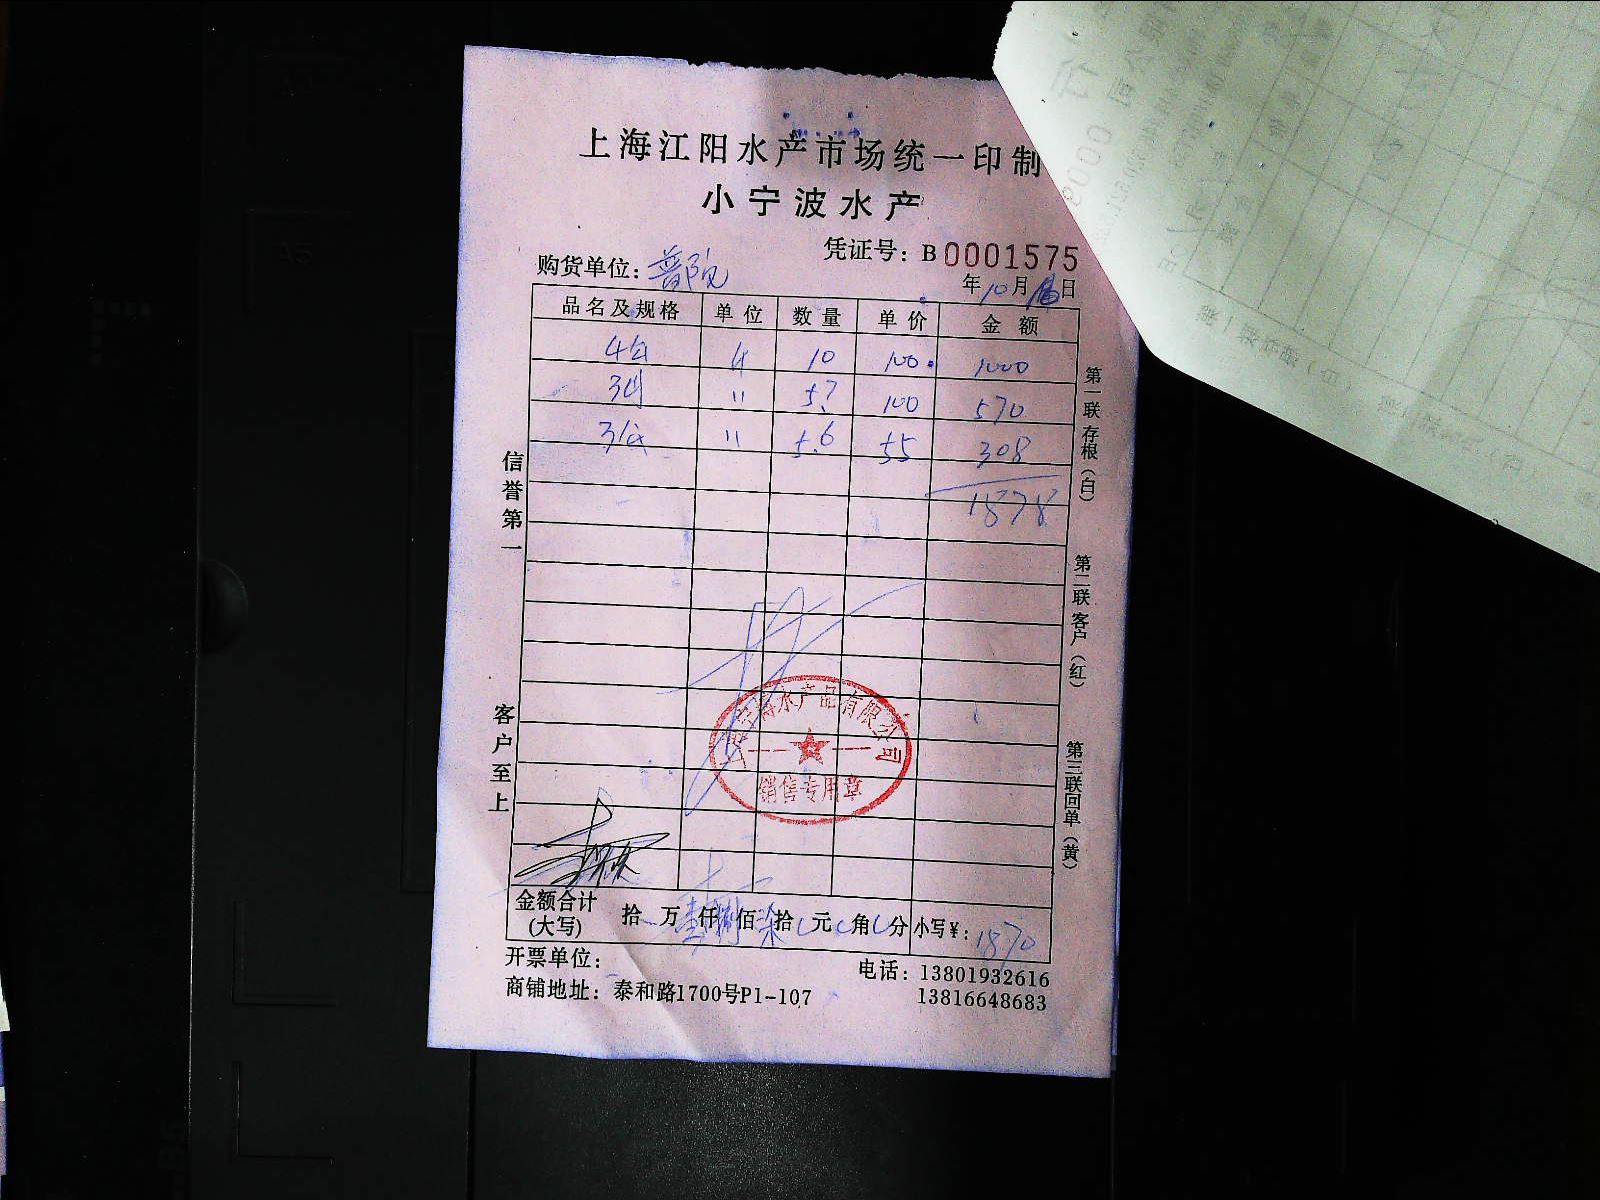 上海江阳水产市场统一印制
小宁波水产
凭证号：B0001575
购货单位：
年10月 日
品名及规格 单位 数量 单价 金额
10 100 1000
〃 5.7 100 570
〃 5.6 55 308
1878
信誉第一
客户至上
第一联存根（白）
第二联客户（红）
第三联回单（黄）
上海宁海水产品有限公司
销售专用章
金额合计
(大写)
拾 万壹仟捌佰柒拾 元 角 分 小写￥：1870
开票单位：
电话：13801932616
商铺地址：泰和路1700号P1-107
13816648683